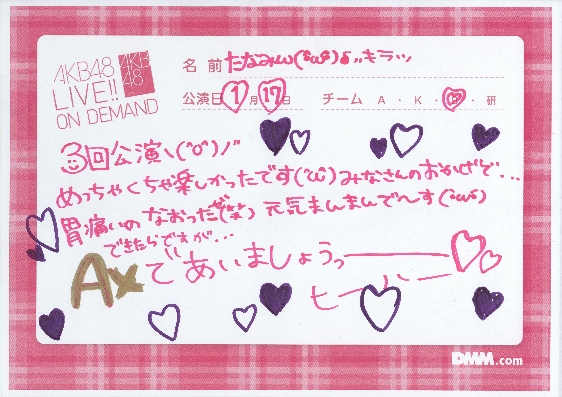 AKB48
LIVE!!
ON DEMAND
AKB
48
名前 たなみん(°ω°)♪,,キラッ
公演日 1月17日 チーム A・K・B・研
3回公演\(°o°)/
めっちゃくちゃ楽しかったです(´ω`)みなさんのおかげで...
胃痛いのなおったぜ(笑) 元気まんまんで〜す(°ω°)
できたらですが...
AXであいましょうっー
ヒーハー
DMM.com